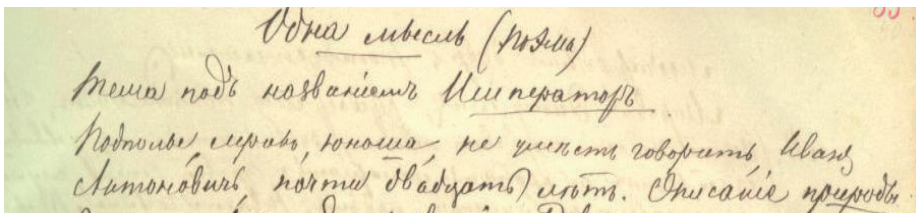 Одна мысль (поэма)
Тема подъ названіемъ Императоръ
Подполье, мракъ, юноша, не умѣетъ говорить, Иванъ
Антоновичь, почти двадцать лѣтъ. Описаніе природы